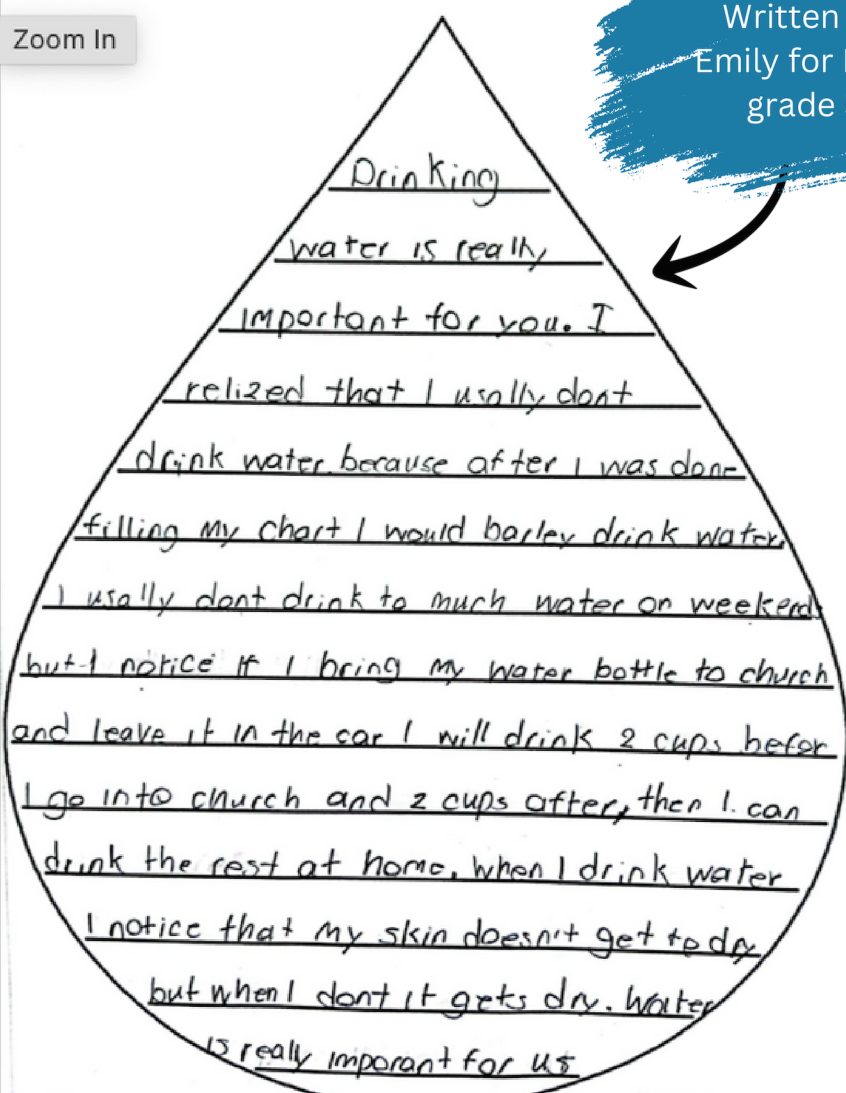 Zoom In
Written
Emily for
grade
Drinking
water is really
important for you. I
relized that I usally dont
drink water because after I was done
filling my chart I would barley drink water,
I usally dont drink to much water on weekends
but I notice if I bring my water bottle to church
and leave it in the car I will drink 2 cups befor
I go into church and 2 cups after, then I can
drink the rest at home. When I drink water
I notice that my skin doesn't get to dry
but when I dont it gets dry. Water
is really imporant for us